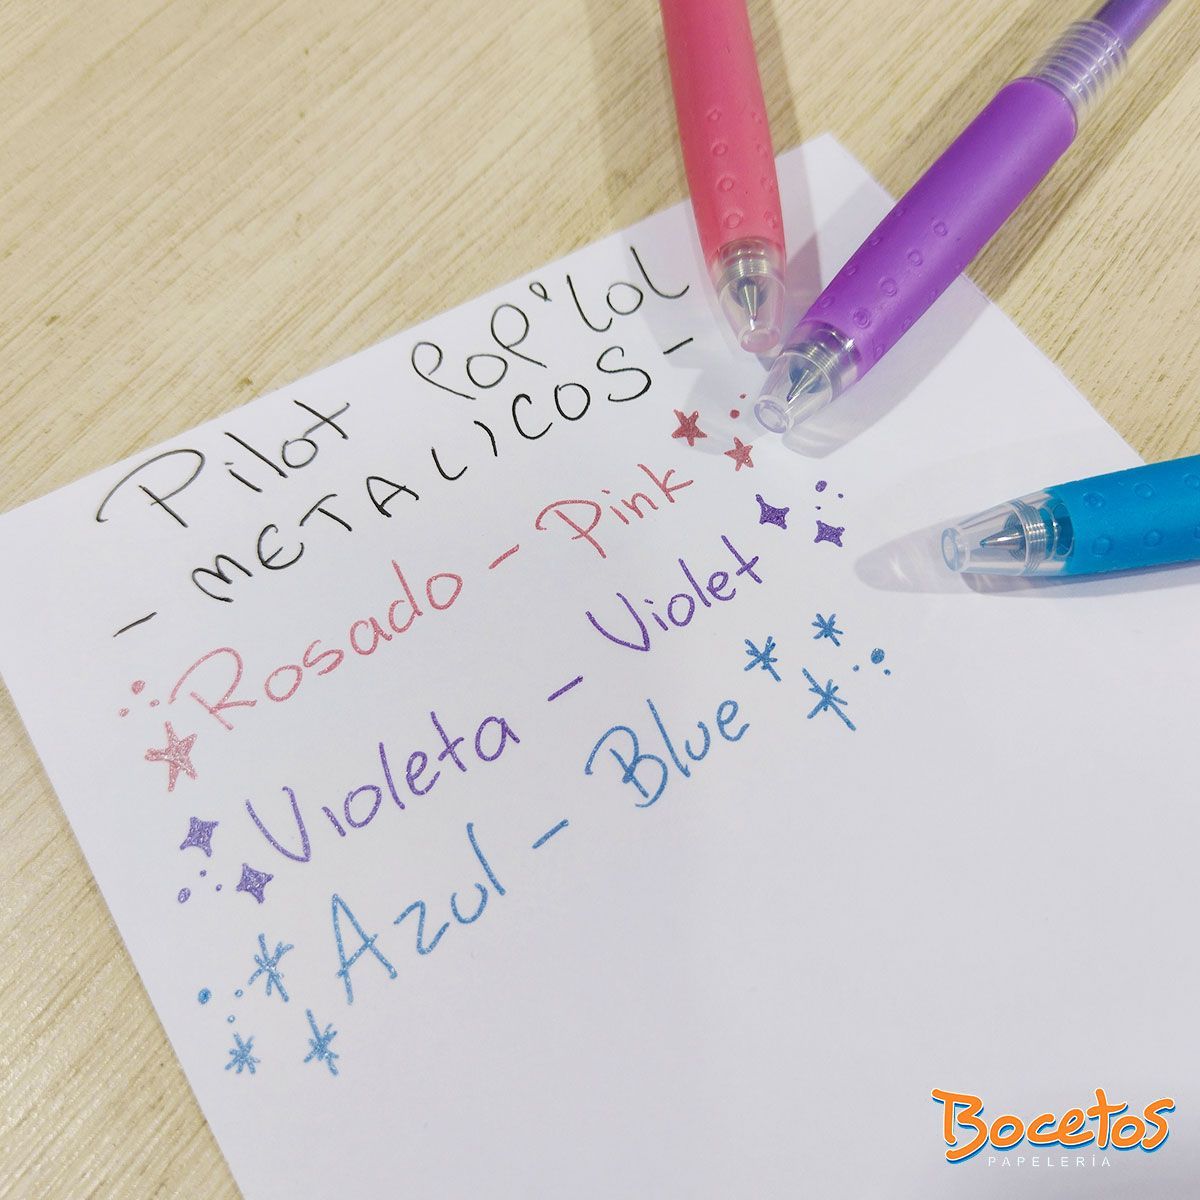 Pilot Pop'Lol
- METALICOS -
Rosado - Pink
Violeta - Violet
Azul - Blue
Bocetos
PAPELERÍA